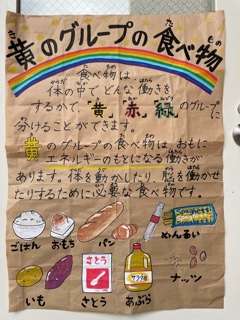 黄のグループの食べ物
食べ物は、
体の中でどんな働きを
するかで、"黄""赤""緑"のグループに
分けることができます。
黄のグループの食べ物は、おもに
エネルギーのもとになる働きが
あります。体を動かしたり、脳を働かせ
たりするために必要な食べ物です。
ごはん おもち パン めんるい
さとう サラダ油
いも さとう あぶら ナッツ